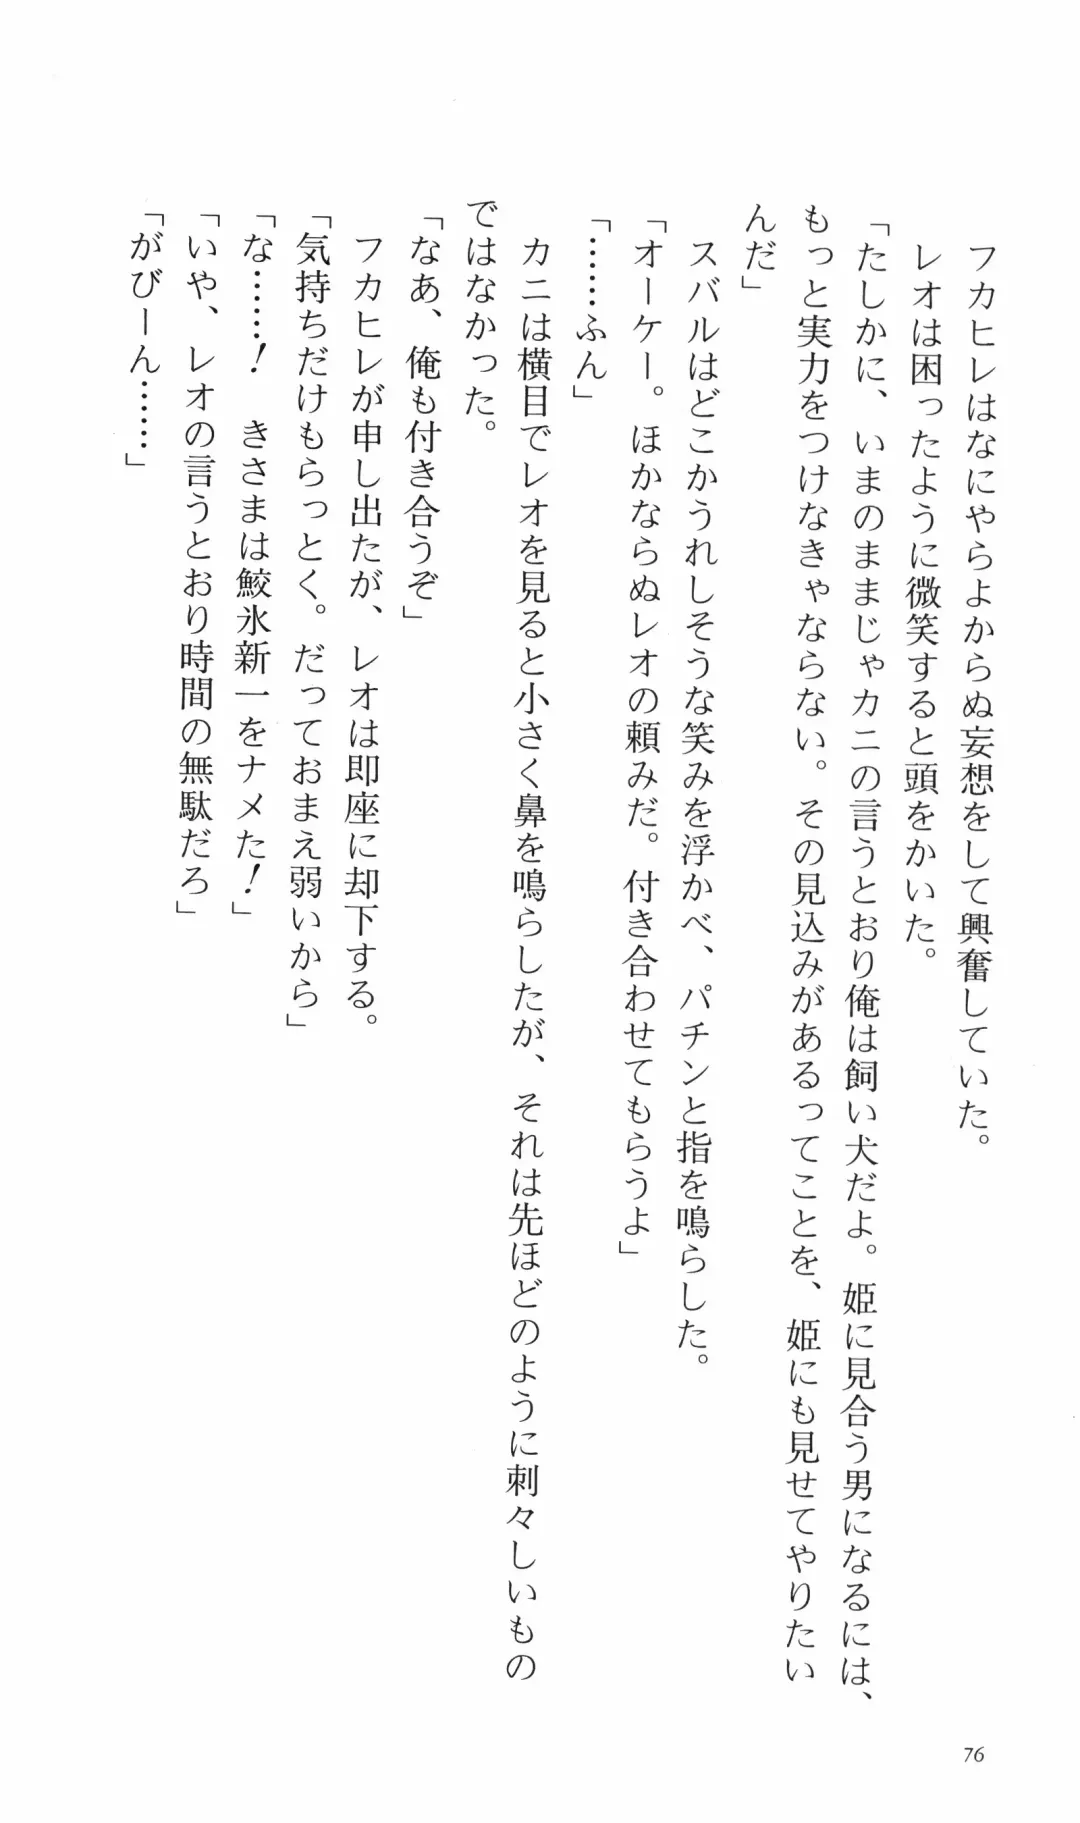 フカヒレはなにやらよからぬ妄想をして興奮していた。
　レオは困ったように微笑すると頭をかいた。
「たしかに、いまのままじゃカニの言うとおり俺は飼い犬だよ。姫に見合う男になるには、
もっと実力をつけなきゃならない。その見込みがあるってことを、姫にも見せてやりたい
んだ」
　スバルはどこかうれしそうな笑みを浮かべ、パチンと指を鳴らした。
「オーケー。ほかならぬレオの頼みだ。付き合わせてもらうよ」
「……ふん」
　カニは横目でレオを見ると小さく鼻を鳴らしたが、それは先ほどのように刺々しいもの
ではなかった。
「なあ、俺も付き合うぞ」
　フカヒレが申し出たが、レオは即座に却下する。
「気持ちだけもらっとく。だっておまえ弱いから」
「な……！　きさまは鮫氷新一をナメた！」
「いや、レオの言うとおり時間の無駄だろ」
「がびーん……」
76